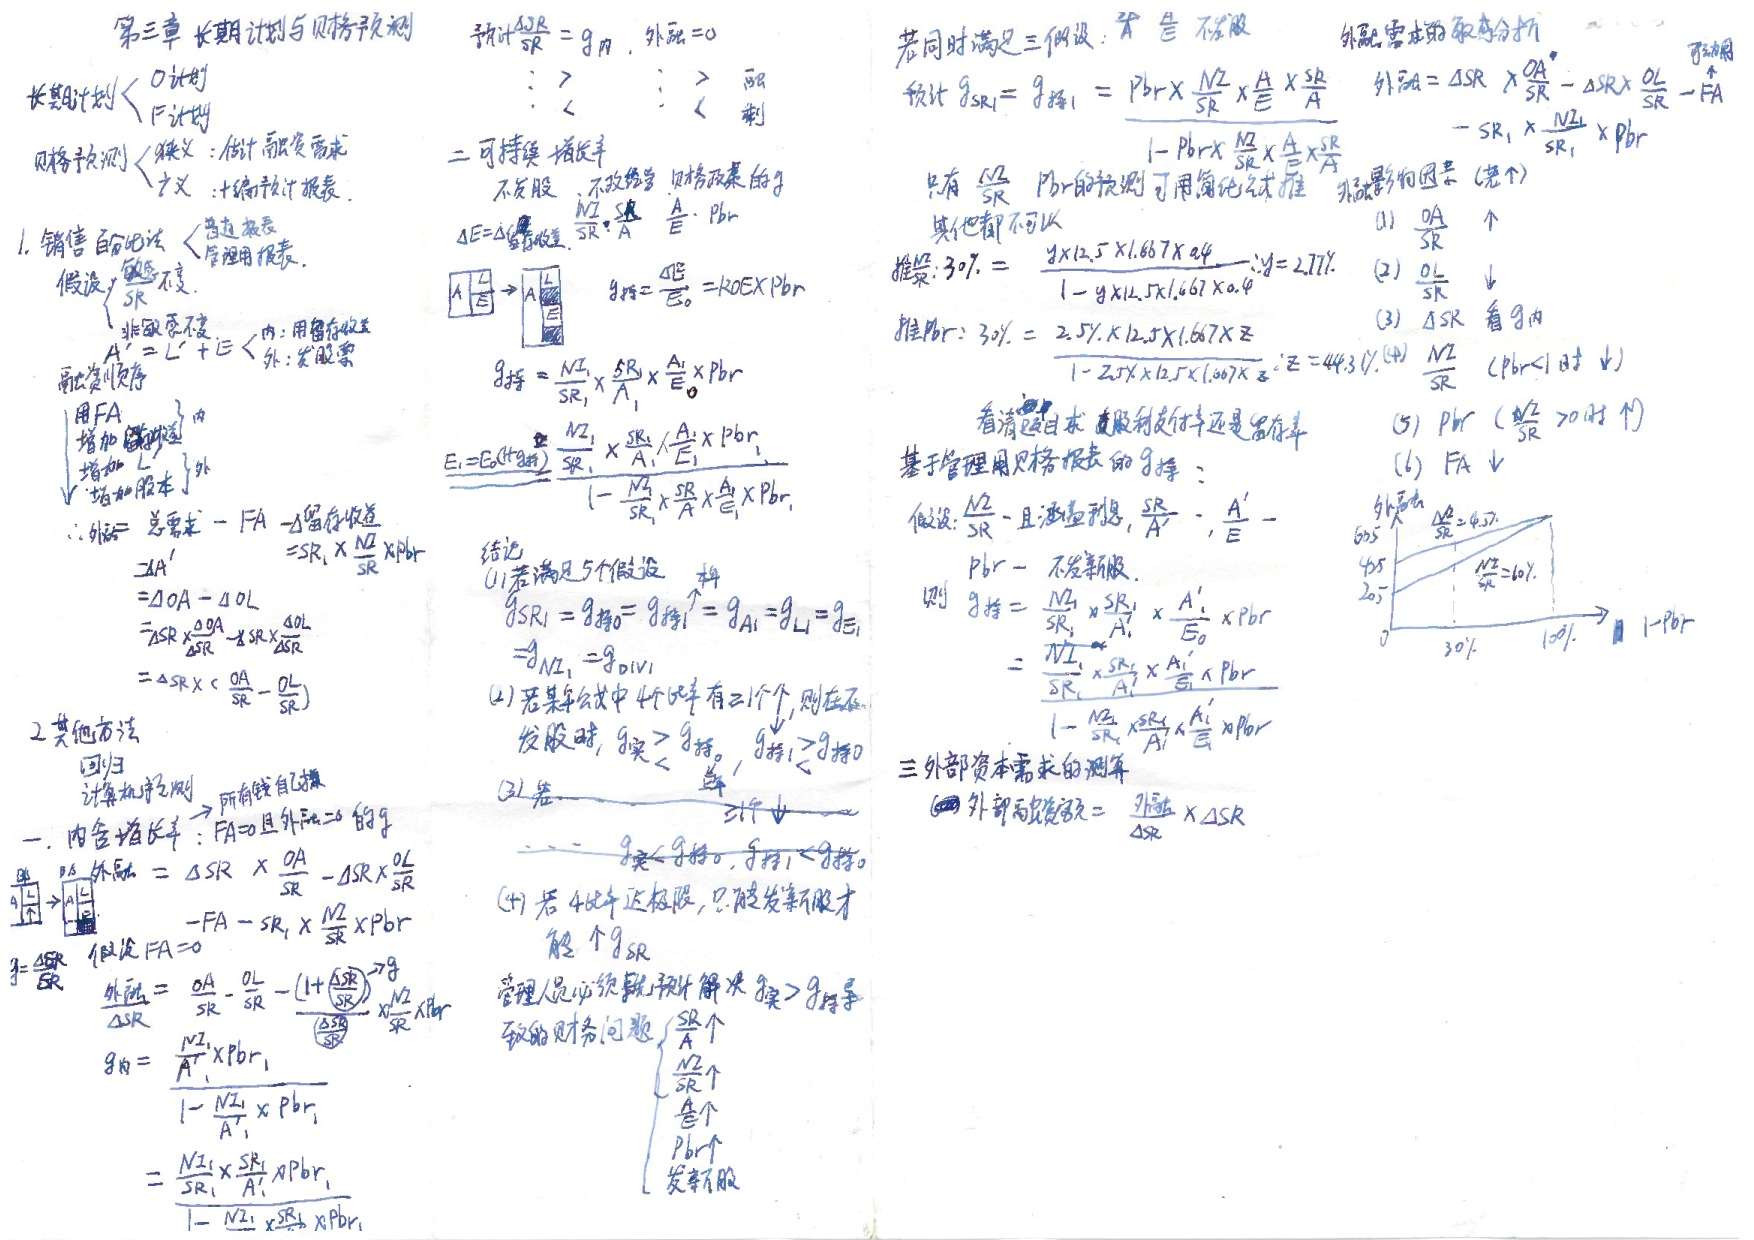 第三章 长期计划与财务预测
长期计划 O计划
F计划
财务预测 狭义：估计融资需求
广义：+编预计报表.
1. 销售百分比法 普通报表
管理用报表.
假设 敏感/SR 不变.
非敏感不变
A' = L' + E 内：用留存收益
外：发股票
融资顺序
用FA
增加留存收益 内
增加L
增加股本 外
∴外融= 总需求 - FA - Δ留存收益
=SR₁ × NI/SR × Pbr
=ΔA'
=ΔOA - ΔOL
=ΔSR × ΔOA/ΔSR - ΔSR × ΔOL/ΔSR
=ΔSR × (OA/SR - OL/SR)
2 其他方法
回归
计算机预测
→ 所有钱自己挣
一. 内含增长率：FA=0且外融=0 的g
外融 = ΔSR × OA/SR - ΔSR × OL/SR
-FA - SR₁ × NI/SR × Pbr
g=ΔSR/SR 假设FA=0
外融/ΔSR = OA/SR - OL/SR - (1+ΔSR/SR)/(ΔSR/SR) × NI/SR × Pbr → g
g内 = (NI₁/A'₁ × Pbr₁)/(1 - NI₁/A'₁ × Pbr₁)
= (NI₁/SR₁ × SR₁/A'₁ × Pbr₁)/(1 - NI₁ × SR₁ × Pbr₁
预计 ΔSR/SR = g内, 外融=0
: > : > 融
: < : < 剩
二 可持续增长率
不发股、不改经营、财务政策的g
NI/SR · SR/A A/E · Pbr
ΔE=Δ留存收益.
A L E → A L E
g持 = ΔE/E₀ = ROE×Pbr
g持 = NI₁/SR₁ × SR₁/A₁ × A₁/E₀ × Pbr
E₁=E₀(1+g持) = (NI₁/SR₁ × SR₁/A₁ × A₁/E₁ × Pbr₁)/(1 - NI₁/SR₁ × SR/A × A₁/E₁ × Pbr₁)
结论
(1) 若满足5个假设
gSR₁ = g持₀ = g持₁ = gA₁ = gL₁ = gE₁
=gNI₁ = gDIV₁
(2) 若某年公式中4个比率有≥1个↑, 则在不
↓
发股时, g实 > g持₀, g持₁ > g持₀
< <
(3) 若
≥1个↓
g实 < g持₀, g持₁ < g持₀
(4) 若4比率达极限, 只能发新股才
能↑gSR
管理人员必须预计解决 g实 > g持导
致的财务问题 SR/A ↑
NI/SR ↑
A/E ↑
Pbr↑
发新股
若同时满足三假设: A/E 不发股
预计 gSR₁ = g持₁ = (Pbr × NI/SR × A/E × SR/A)/(1 - Pbr × NI/SR × A/E × SR/A)
只有 NI/SR Pbr的预测可用简化公式推
其他都不可以
推NI/SR: 30% = (y×12.5×1.667×0.4)/(1 - y×12.5×1.667×0.4) ∴y=2.77%
推Pbr: 30% = (2.5%×12.5×1.667×z)/(1 - 2.5%×12.5×1.667×z) ∴z=44.31%
看清题目求股利支付率还是留存率
基于管理用财务报表的g持：
假设: NI/SR - 且涵盖利息, SR/A' -, A'/E -
Pbr - 不发新股.
则 g持 = NI₁/SR₁ × SR₁/A'₁ × A'₁/E₀ × Pbr
= (NI₁/SR₁ × SR₁/A'₁ × A'₁/E₁ × Pbr)/(1 - NI₁/SR₁ × SR₁/A'₁ × A'₁/E₁ × Pbr)
三 外部资本需求的测算
外部融资额 = 外融/ΔSR × ΔSR
外融需求的敏感分析
可动用
↑
外融 = ΔSR × OA/SR - ΔSR × OL/SR - FA
- SR₁ × NI₁/SR₁ × Pbr
外融影响因素 (若↑)
(1) OA/SR ↑
(2) OL/SR ↓
(3) ΔSR 看g内
(4) NI/SR (Pbr<1时 ↓)
(5) Pbr (NI/SR >0时 ↑)
(6) FA ↓
外融
605
NI/SR=4.5%
405
205
NI/SR=60%
0 30% 100% 1-Pbr